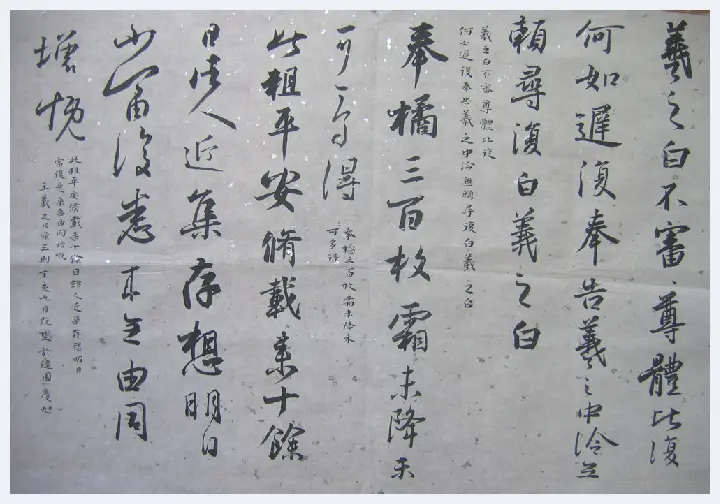 羲之白不審尊體比復
何如遲復奉告羲之中冷無
賴尋復白羲之白
羲之白不審尊體比復
何如遲復奉告羲之中冷無賴尋復白羲之白
奉橘三百枚霜未降未
可多得
奉橘三百枚霜未降未
可多得
此粗平安脩載來十餘
日諸人近集存想明日
當復悉來無由同
增慨
此粗平安脩載來十餘日諸人近集存想明日
當復悉來無由同增慨
王羲之